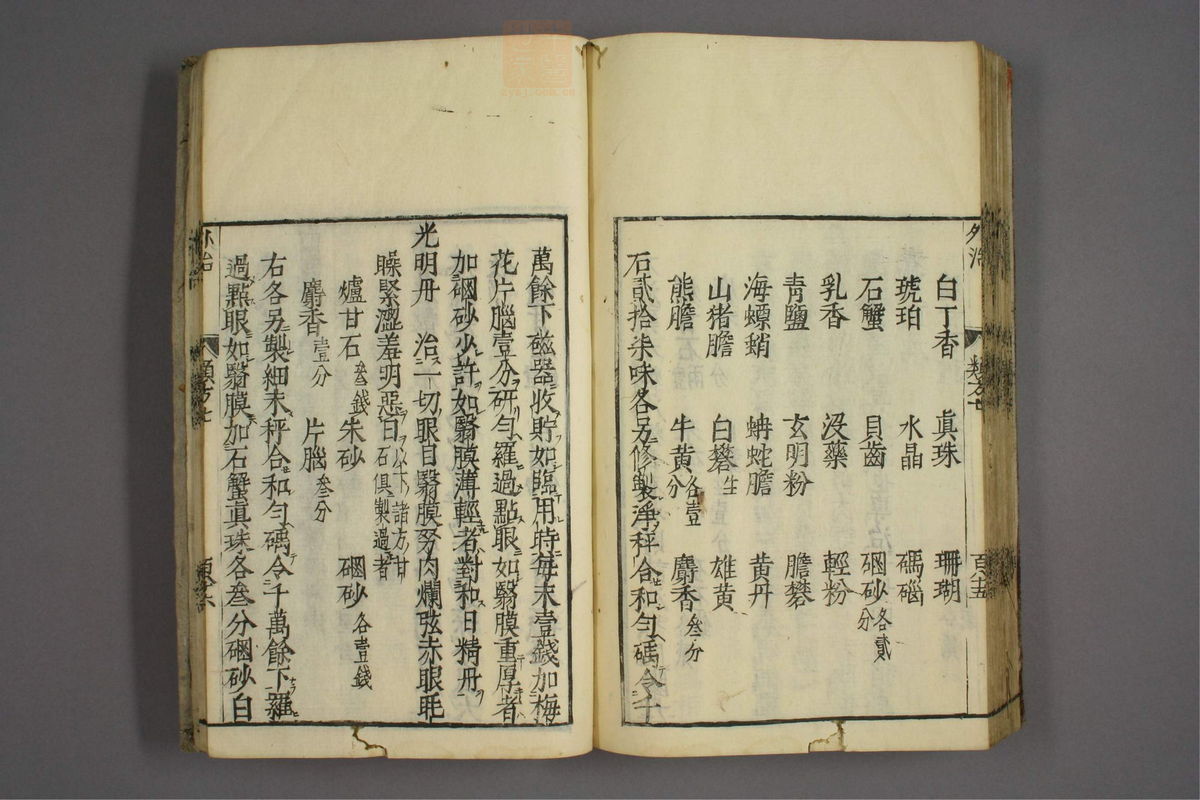 外治
類方七
百五
白丁香 真珠 珊瑚
琥珀 水晶 碼碯
石蟹 貝齒 硇砂各貳分
乳香 没藥 輕粉
靑鹽 玄明粉 膽礬
海螵蛸 蚺蛇膽 黄丹
山猪膽 白礬生 雄黄
熊膽 牛黄各壹分 麝香叁分
石貳拾柒味各另修製淨秤合和勻碾令千
萬餘下磁器收貯如臨用時每末壹錢加梅
花片腦壹分研勻羅過點眼如翳膜重厚者
加硇砂少許如翳膜薄輕者對和日精丹
光明丹 治一切眼目翳膜努肉爛弦赤眼眊
矂緊澀羞明惡日以下諸方甘石俱製過者
爐甘石叁錢 朱砂 硇砂各壹錢
麝香壹分 片腦叁分
右各另製細末秤合和勻碾令千萬餘下羅
過點眼如翳膜加石蟹真珠各叁分硇砂白
外治
類方七
百六